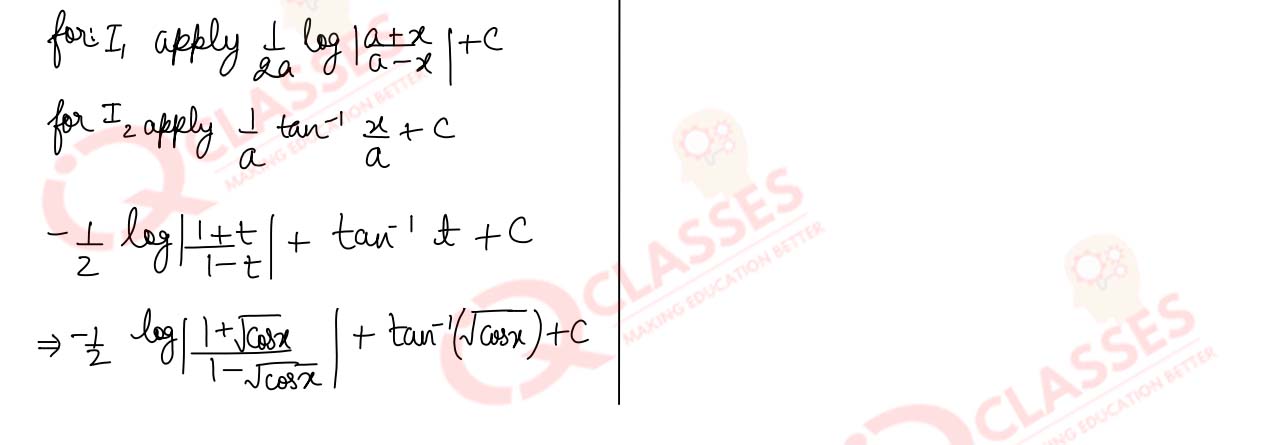 for: I₁ apply 1/2a log |a+x/a-x| + C
for I₂ apply 1/a tan⁻¹ x/a + C
-1/2 log |1+t/1-t| + tan⁻¹ t + C
⇒ -1/2 log |1+√cosx/1-√cosx| + tan⁻¹(√cosx) + C
iQ CLASSES
MAKING EDUCATION BETTER
iQ CLASSES
MAKING EDUCATION BETTER
iQ CLASSES
MAKING EDUCATION BETTER